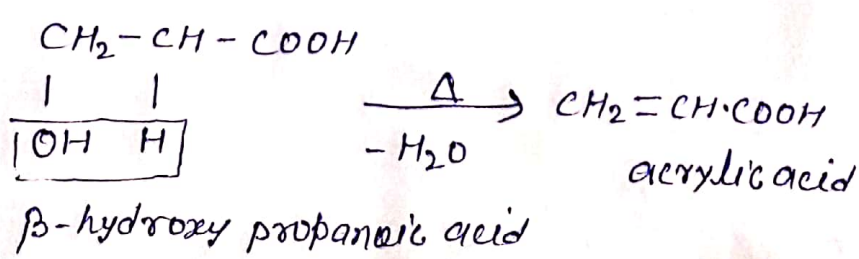 CH₂-CH-COOH
| |
OH H
Δ
-H₂O
CH₂=CH·COOH
acrylic acid
β-hydroxy propanoic acid